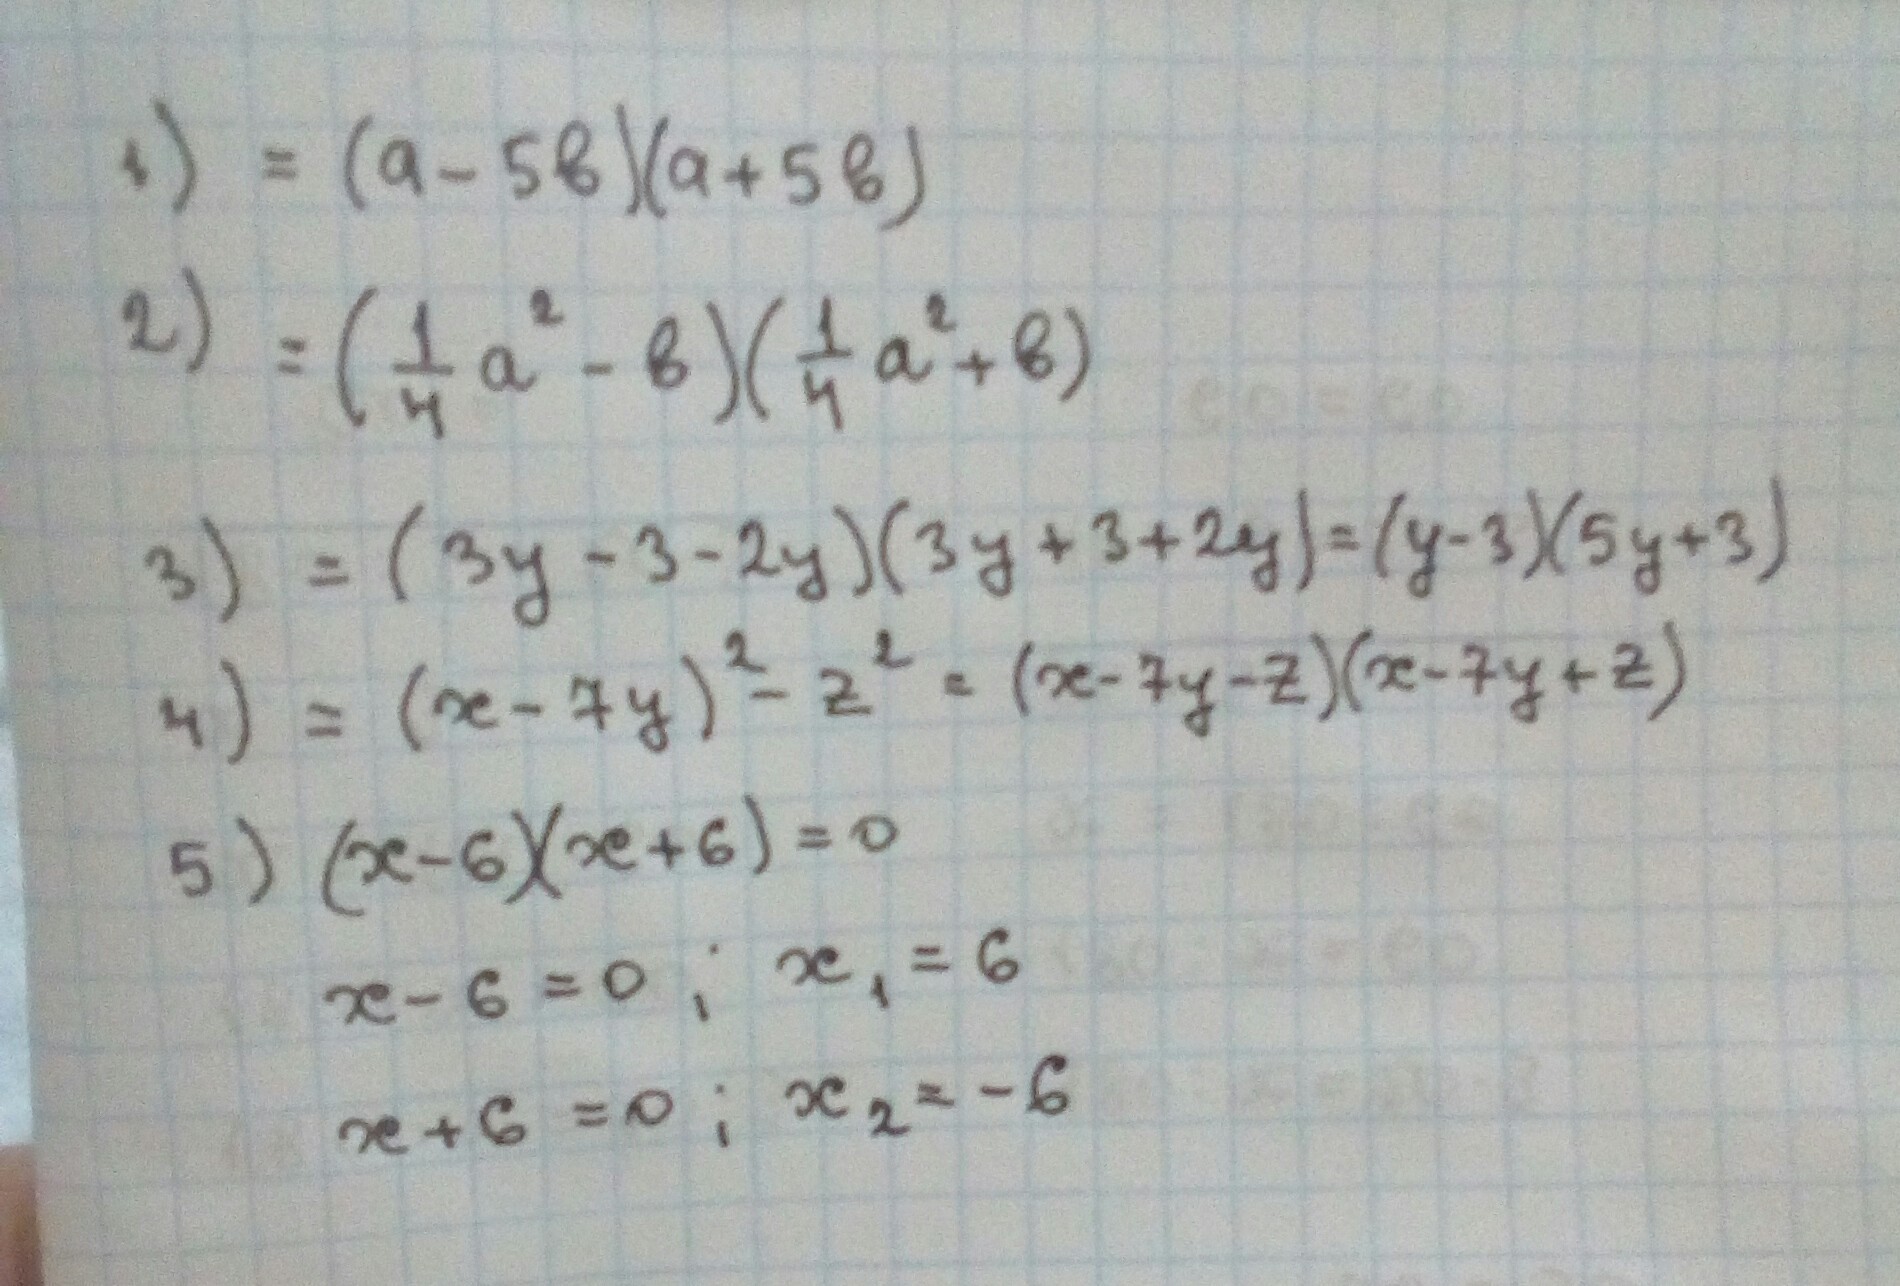 1) = (a - 5b)(a + 5b)
2) = (1/4 a² - b)(1/4 a² + b)
3) = (3y - 3 - 2y)(3y + 3 + 2y) = (y - 3)(5y + 3)
4) = (x - 7y)² - z² = (x - 7y - z)(x - 7y + z)
5) (x - 6)(x + 6) = 0
x - 6 = 0 ; x₁ = 6
x + 6 = 0 ; x₂ = -6